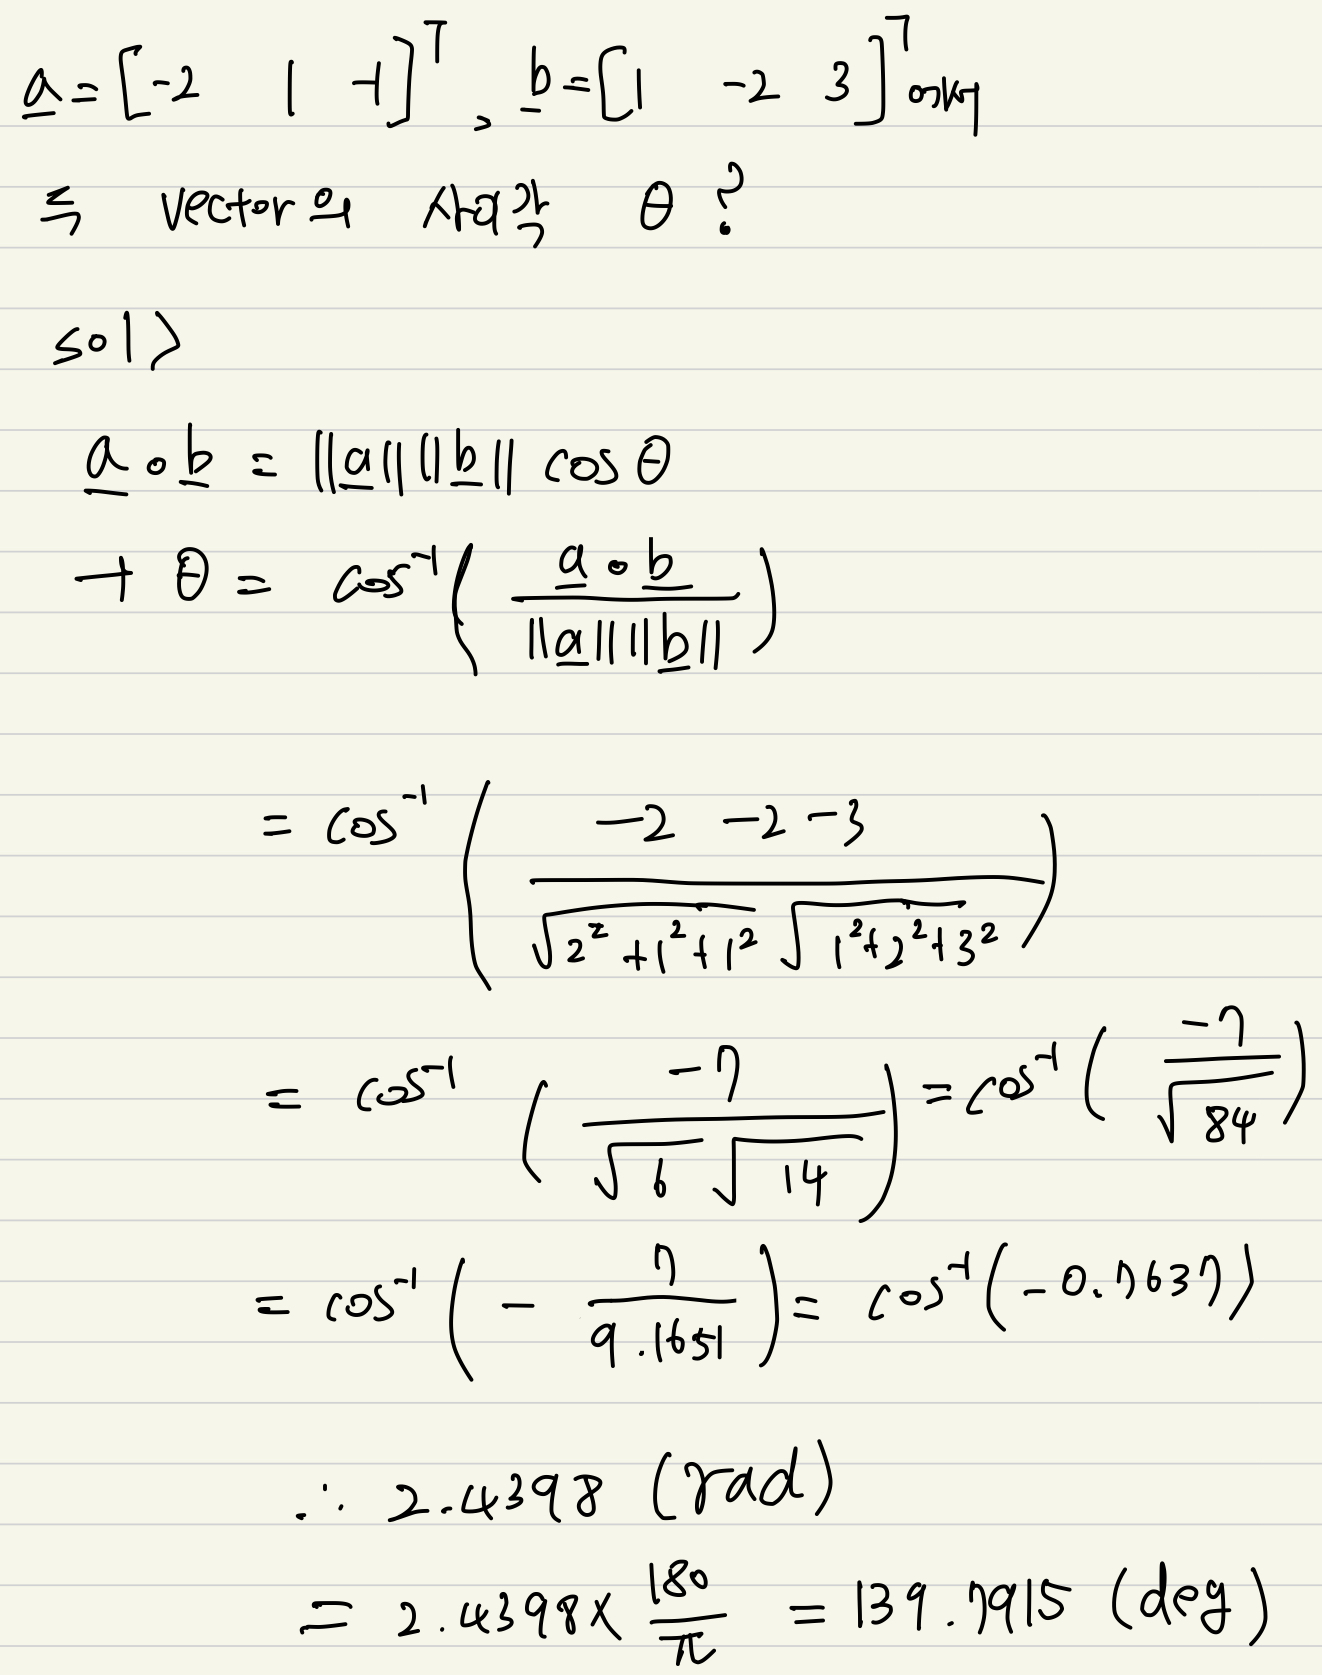 a = [-2 1 -1]ᵀ, b = [1 -2 3]ᵀ에서
두 vector의 사이각 θ ?
sol>
a ∘ b = ||a|| ||b|| cos θ
→ θ = cos⁻¹( a ∘ b / ||a|| ||b|| )
= cos⁻¹( -2 -2 -3 / √(2² + 1² + 1²) √(1² + 2² + 3²) )
= cos⁻¹( -7 / √6 √14 ) = cos⁻¹( -7 / √84 )
= cos⁻¹( - 7 / 9.1651 ) = cos⁻¹(-0.7637)
∴ 2.4398 (rad)
= 2.4398 × 180/π = 139.7915 (deg)